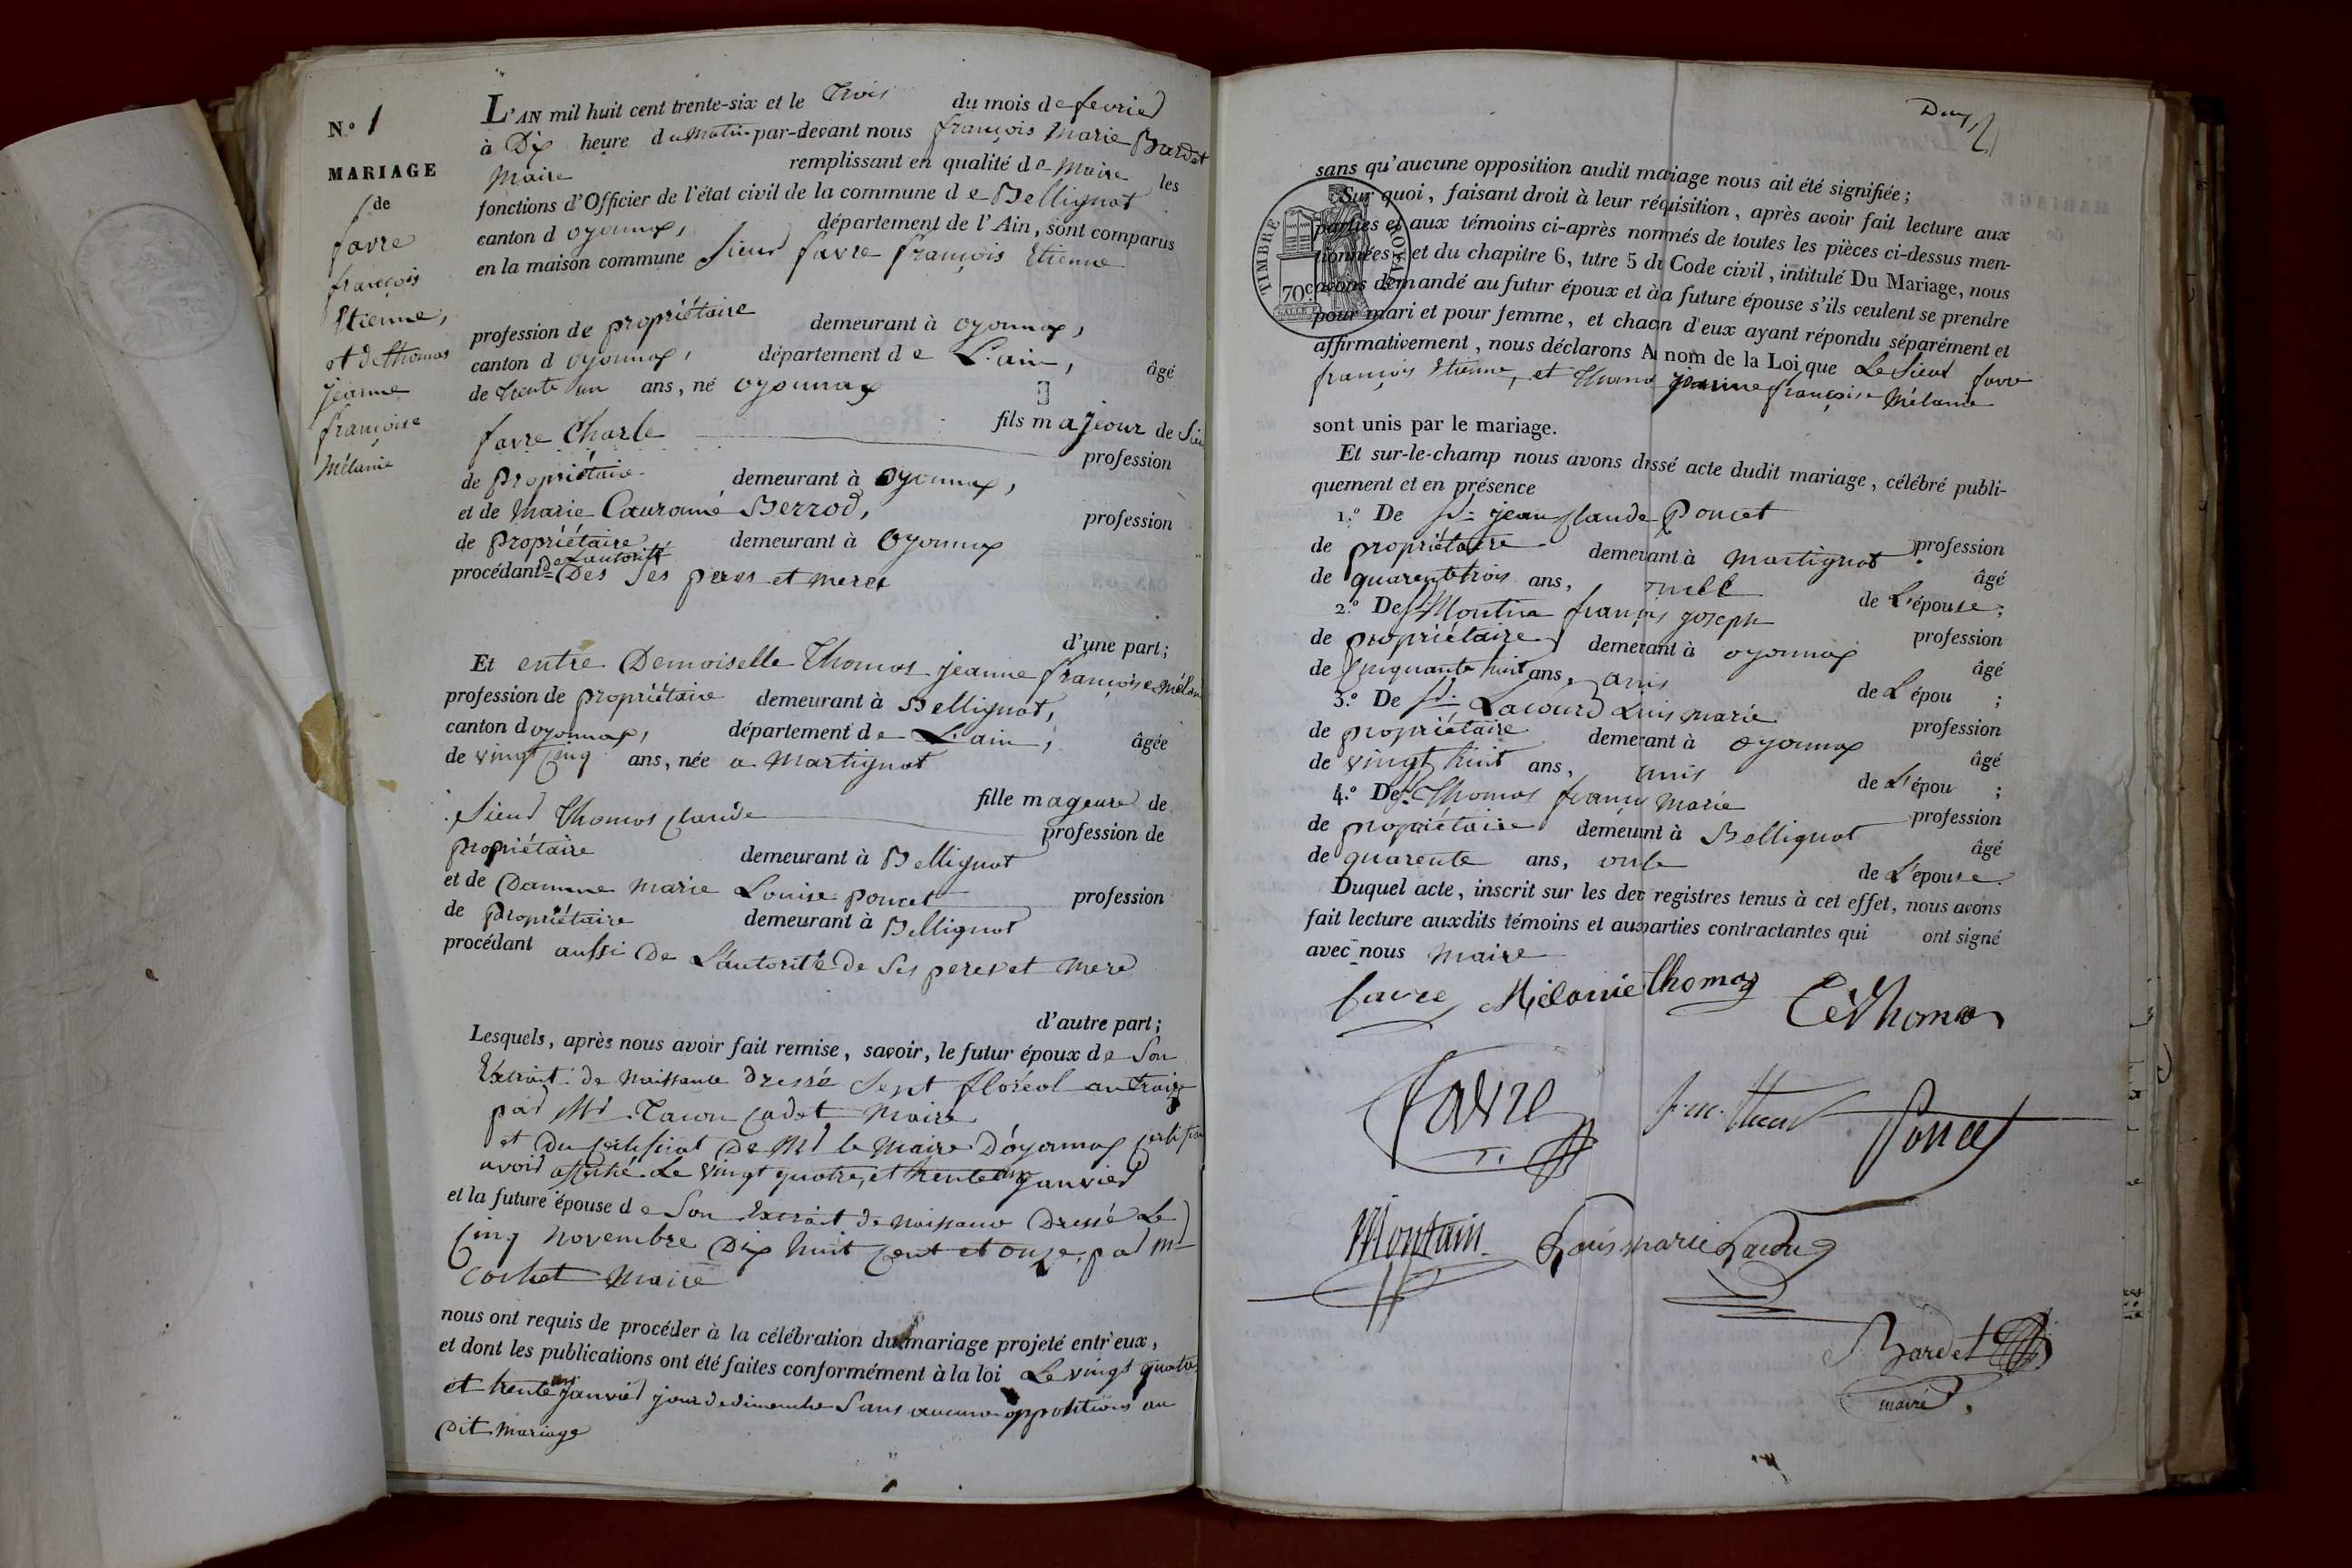 N.o 1
MARIAGE
de
favre
françois
Etienne,
et de thomas
jeanne
françoise
Mélanie
L'AN mil huit cent trente-six et le Trois du mois de fevrier
à Dix heure du matin par-devant nous françois Marie Bardet
Maire remplissant en qualité de Maire les
fonctions d'Officier de l'état civil de la commune de Bellignat
canton d oyonnax, département de l'Ain, sont comparus
en la maison commune Sieur favre françois Etienne
profession de propriétaire demeurant à oyonnax,
canton d oyonnax, département de L'ain, âgé
de trente un ans, né oyonnax
fils majeour de Sieu
favre Charle profession
de propriétaire demeurant à oyonnax,
et de Marie Berrod, profession
de propriétaire demeurant à oyonnax
De L'autorité
procédant Des Ses peres et meres
d'une part;
Et entre Demoiselle Thomas jeanne françoise mélan
profession de propriétaire demeurant à Bellignat,
canton d oyonnax, département de L'ain, âgée
de vingt Cinq ans, née a Martignat
fille mageure de
Sieur Thomas claude profession de
propriétaire demeurant à Bellignat
et de Damme marie Louise poncet profession
de propriétaire demeurant à Bellignat
procédant aussi De L'autorité de Ses peres et mere
d'autre part;
Lesquels, après nous avoir fait remise, savoir, le futur époux de Son
Extrait de Naissance dressé Sept floréal an traize
par Mr Tacon Cadet Maire
et Du Certificat De Mr le Maire D'oyonnax
avoir affiché Le vingt quatre, et trente un janvier
et la future épouse de Son Extrait de naissance Dressé Le
Cinq novembre Dix huit Cent et onze, par mr
Cochet Maire
nous ont requis de procéder à la célébration du mariage projeté entr'eux,
et dont les publications ont été faites conformément à la loi Le vingt quatre
et trente un janvier jour de dimenche Sans aucune oppositions au
Dit mariage
Deux
2
sans qu'aucune opposition audit mariage nous ait été signifiée;
Sur quoi, faisant droit à leur réquisition, après avoir fait lecture aux
parties et aux témoins ci-après nommés de toutes les pièces ci-dessus men-
tionnées, et du chapitre 6, titre 5 du Code civil, intitulé Du Mariage, nous
avons demandé au futur époux et à la future épouse s'ils veulent se prendre
pour mari et pour femme, et chacun d'eux ayant répondu séparément et
affirmativement, nous déclarons Au nom de la Loi que Le Sieur favre
françois Etienne, et Thomas jeanne françoise Mélanie
TIMBRE ROYAL
70c
sont unis par le mariage.
Et sur-le-champ nous avons dressé acte dudit mariage, célébré publi-
quement et en présence
1.o De Sr jean Claude Poncet profession
de propriétaire demeurant à Martignat âgé
de quarente trois ans, oncle de L'épouse;
2.o De Sr Montin françois joseph profession
de propriétaire demeurant à oyonnax âgé
de cinquante huit ans, amis de L'épou ;
3.o De Sr Lacourd Luis marie profession
de propriétaire demeurant à oyonnax âgé
de vingt huit ans, amis de L'épou ;
4.o De Sr Thomas françois Marie profession
de propriétaire demeurant à Bellignat âgé
de quarente ans, oncle de L'épouse.
Duquel acte, inscrit sur les deux registres tenus à cet effet, nous avons
fait lecture auxdits témoins et aux parties contractantes qui ont signé
avec nous Maire
favre Mélanie thomas Ce Thomas
favre Poncet
Montain Louis marie Lacour
Bardet
maire